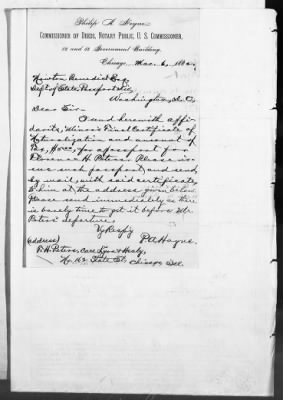 Philip A. Hoyne
COMMISSIONER OF DEEDS, NOTARY PUBLIC, U. S. COMMISSIONER,
Government Building.
Chicago, Mar. 6, 188
Newton Benedict Esq.
Dept of State, Passport
Washington, D. C.
Dear Sir:
I send herewith affi-
davits, Minor's Final Certificate of
Naturalization and amount of
for a passport for
Florence H. Peters. Please is-
sue such passport, and send
by mail, with said certificate,
to him at the address given below.
Please send immediately as there
is barely time to get it before Mr.
Peters' departure.
Vy Respfy
P. A. Hoyne.
(address)
F. H. Peters, Care Lyon & Healy,
No. 162 State St. Chicago Ill.